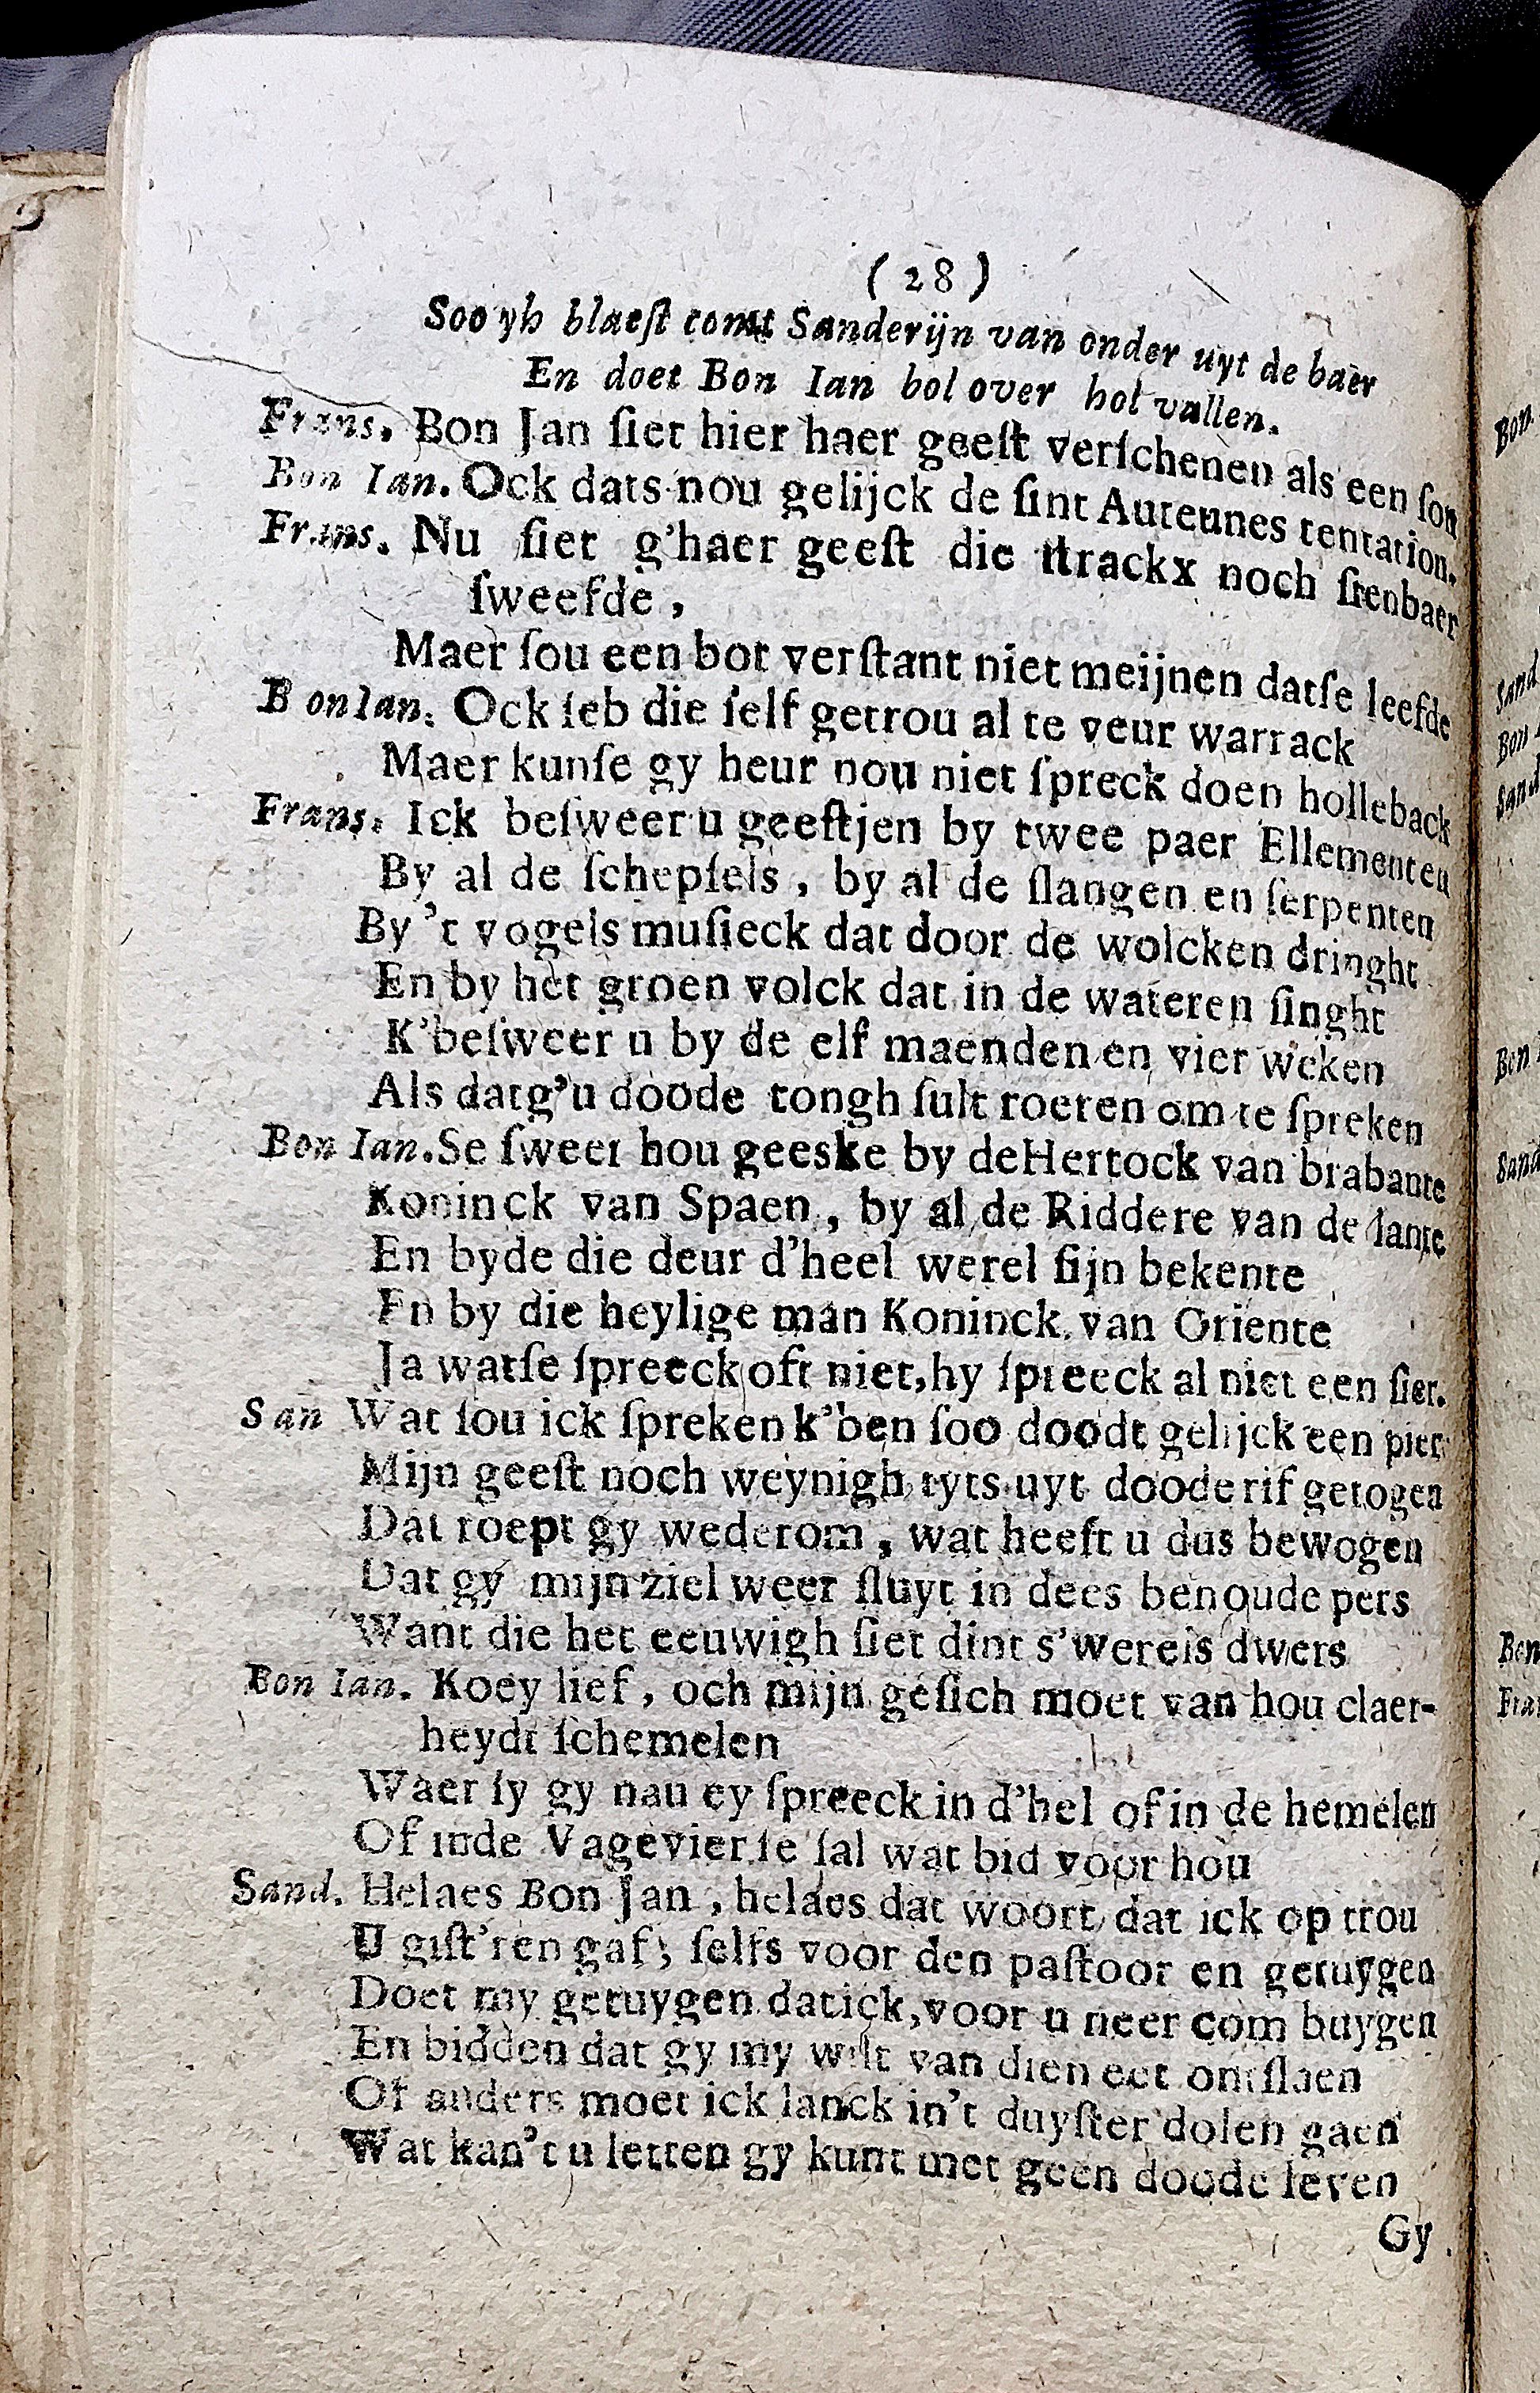 ( 28 )
Soo yh blaeſt comt Sanderijn van onder uyt de baer
En doet Bon Ian bol over bol vallen.
Frans. Bon Jan ſiet hier haer geeſt verſchenen als een ſon
Bon Ian. Ock dats nou gelijck de ſint Auteunes tentation.
Frans. Nu ſiet g'haer geeſt die ſtrackx noch ſienbaer
ſweefde ,
Maer ſou een bot verſtant niet meijnen datſe leefde
B on Ian. Ock ſeb die ſelf getrou al te veur warrack
Maer kunſe gy heur nou niet ſpreck doen holleback
Frans. Ick beſweer u geeſtjen by twee paer Ellementen
By al de ſchepſels , by al de ſlangen en ſerpenten
By 't vogels muſieck dat door de wolcken dringht
En by het groen volck dat in de wateren ſinght
K'beſweer u by de elf maenden en vier weken
Als datg'u doode tongh ſult roeren om te ſpreken
Bon Ian. Se ſweer hou geeske by deHertock van brabante
Koninck van Spaen , by al de Riddere van de lante
En byde die deur d'heel werel ſijn bekente
En by die heylige man Koninck van Oriente
Ja watſe ſpreeck oft niet, hy ſpreeck al niet een ſier.
San Wat ſou ick ſpreken k'ben ſoo doodt gelijck een pier
Mijn geeſt noch weynigh tyts uyt doode rif getogen
Dat roept gy wederom , wat heeft u dus bewogen
Dat gy mijn ziel weer ſluyt in dees benoude pers
Want die het eeuwigh ſiet dint s'werels dwers
Bon Ian. Koey lief , och mijn geſich moet van hou claer-
heydt ſchemelen
Waer ſy gy nau ey ſpreeck in d'hel of in de hemelen
Of inde Vagevier ſe ſal wat bid voor hou
Sand. Helaes Bon Jan , helaes dat woort dat ick op trou
U giſt'ren gaf ; ſelfs voor den paſtoor en getuygen
Doet my getuygen dat ick, voor u neer com buygen
En bidden dat gy my wilt van dien eet ontſlaen
Of anders moet ick lanck in't duyſter dolen gaen
Wat kan't u letten gy kunt met geen doode leven
Gy
Bon
Sand
Bon
Sand
Bon
Sand
Bon
Fra